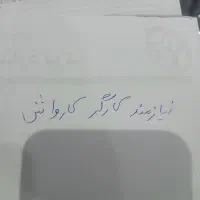 نیازمند کارگر کارواش